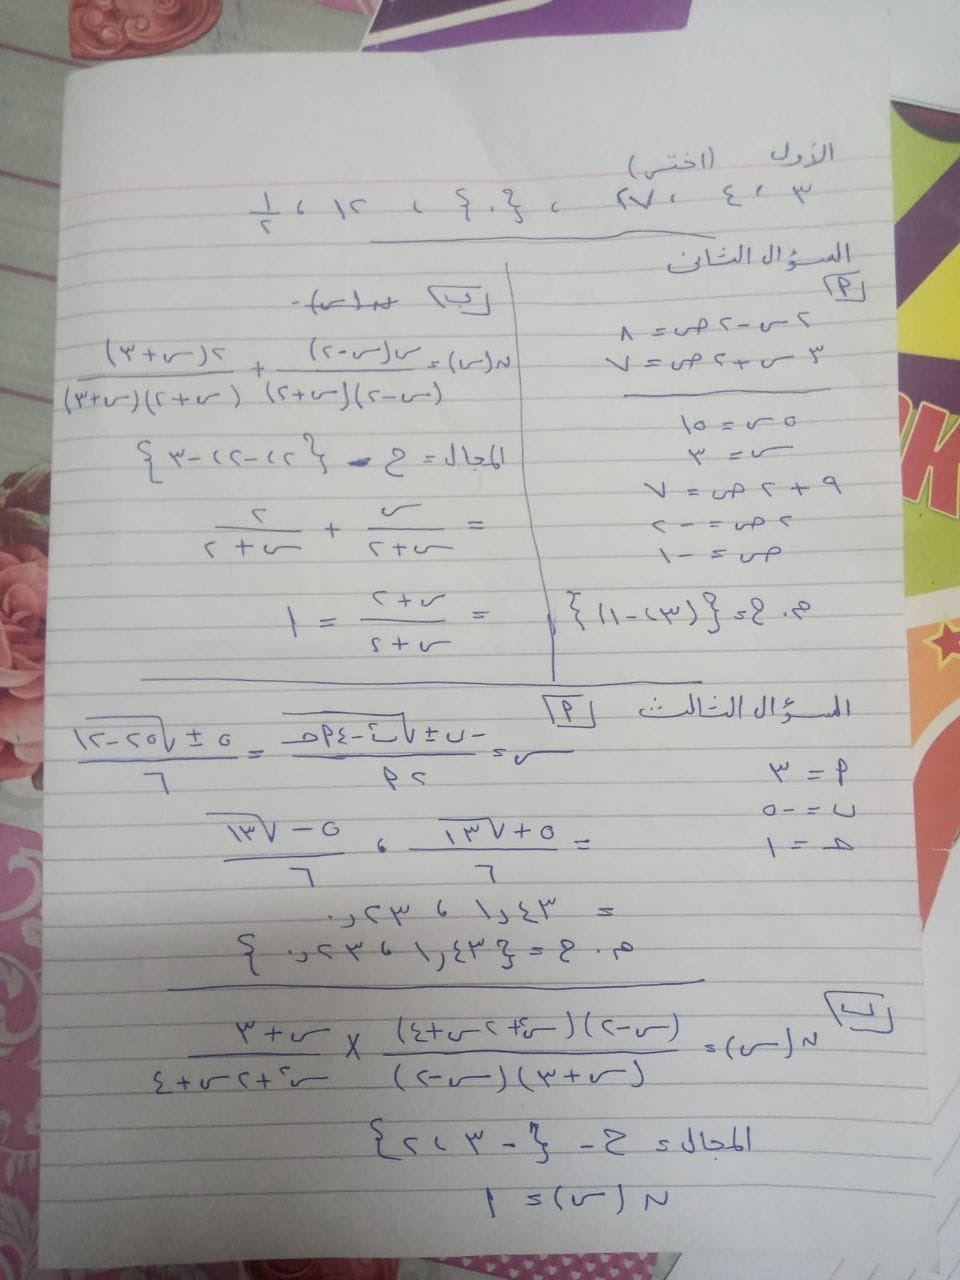 الأول (اختر)
٣ ، ٤ ، ٢٧ ، {٠} ، ١٢ ، ١/٢
السؤال الثانى
أ
٢س - ٢ص = ٨
٣س + ٢ص = ٧
٥س = ١٥
س = ٣
٩ + ٢ص = ٧
٢ص = -٢
ص = -١
م.ح = {(٣، -١)}
ب
ن(س) = س(س-٢)/(س-٢)(س+٢) + ٢(س+٣)/(س+٢)(س+٣)
المجال = ح - {٢، -٢، -٣}
= س/س+٢ + ٢/س+٢
= س+٢/س+٢ = ١
السؤال الثالث
أ
أ = ٣
ب = -٥
حـ = ١
س = -ب ± √ب²-٤أحـ/٢أ = ٥ ± √٢٥-١٢/٦
= ٥+√١٣/٦ ، ٥-√١٣/٦
= ١,٤٣ ، ٠,٢٣
م.ح = {١,٤٣ ، ٠,٢٣}
ب
ن(س) = (س-٢)(س²+٢س+٤)/(س+٣)(س-٢) × س+٣/س²+٢س+٤
المجال = ح - {-٣، ٢}
ن(س) = ١